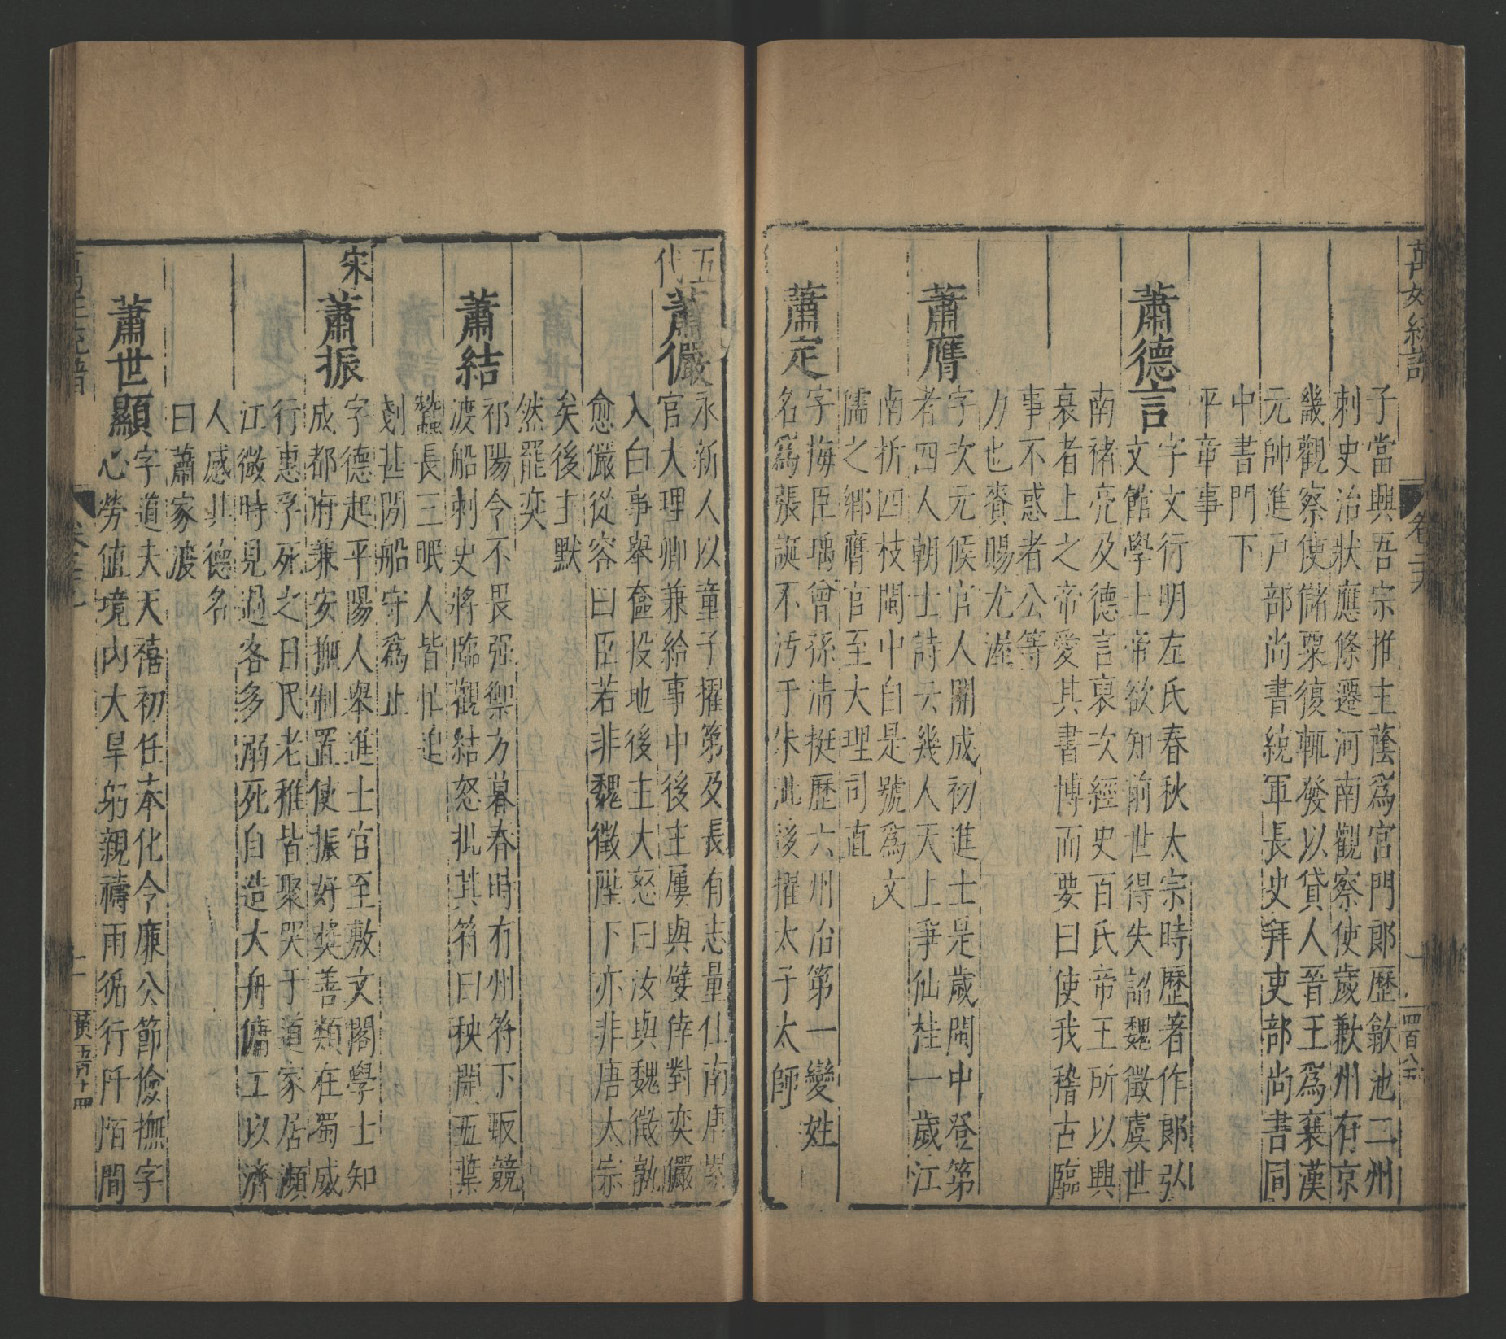 萬姓統譜
卷二九
子當興吾宗推主蔭爲宮門郞歷歙池二州
刺史治狀應條遷河南觀察使歲歉州有京
畿觀察使儲粟復輒發以貸人晉王爲襄漢
元帥進戶部尚書統軍長史拜吏部尚書同
中書門下
平章事
蕭德言
字文行明左氏春秋太宗時歷著作郞弘
文館學士帝欲知前世得失詔魏徵虞世
南褚亮及德言裒次經史百氏帝王所以興
衰者上之帝愛其書博而要曰使我稽古臨
事不惑者公等
力也賚賜尤渥
蕭膺
字次元候官人開成初進士是歲閩中登第
者四人朝士詩云幾人天上爭仙桂一歲江
南折四枝閩中自是號爲文
儒之鄉膺官至大理司直
蕭定
字梅臣瑀曾孫清挺歷六州治第一變姓
名爲張誕不汚于朱泚後擢太子太師
五代
蕭儼
永新人以童子擢第及長有志量仕南唐累
官大理卿兼給事中後主屢與嬖倖對奕儼
入白事舉奩投地後主大怒曰汝與魏徵孰
愈儼從容曰臣若非魏徵陛下亦非唐太宗
矣後主默
然罷奕
蕭結
祁陽令不畏强禦方暮春時有州符下取競
渡船刺史將臨觀結怒批其符曰秧開五葉
蠶長三眠人皆忙迫
劃甚閑船守爲止
宋
蕭振
字德起平陽人舉進士官至敷文閣學士知
成都府兼安撫制置使振好奬善類在蜀威
行惠孚死之日民老稚皆聚哭于道家居瀕
江微時見過客多溺死自造大舟傭工以濟
人感其德名
曰蕭家渡
蕭世顯
字道夫天禧初任奉化令廉公節儉撫字
心勞値境內大旱躬親禱雨循行阡陌間